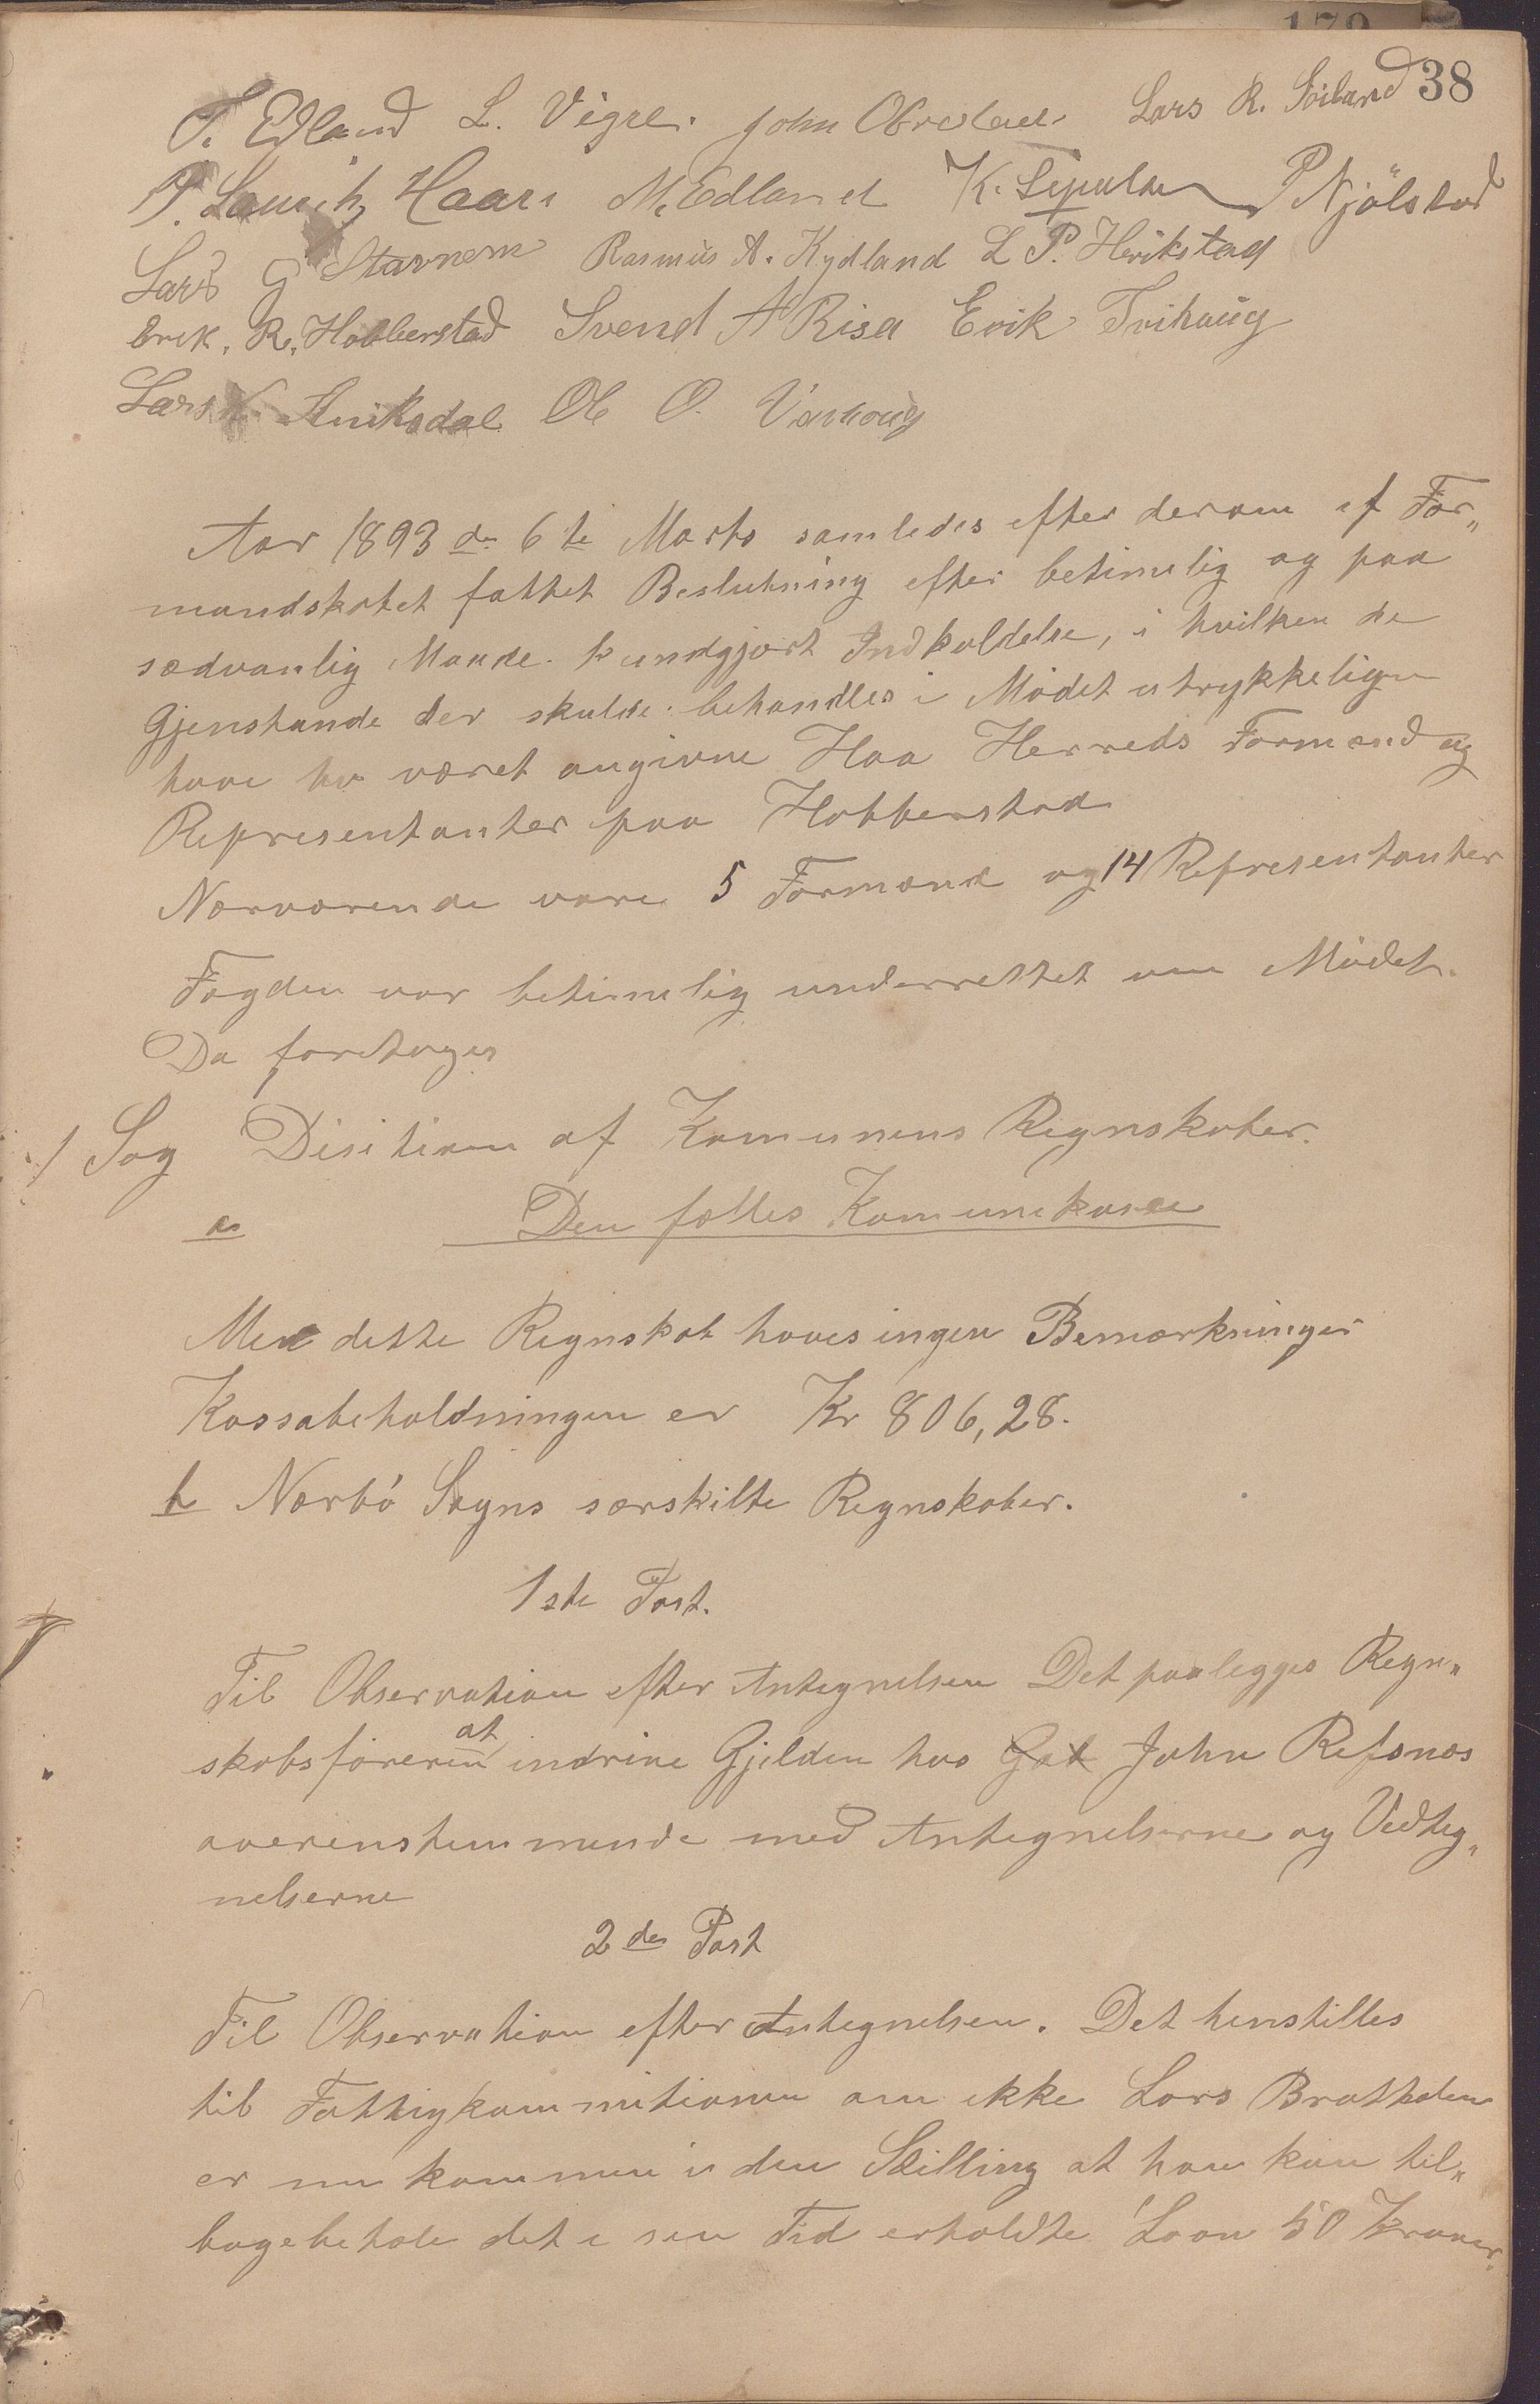 38
T. Edland L. Vigre. John Obrestad. Lars R. Söiland
P. Lauritz Haar. M. Edland K. P Njølstad
Lars G Stavnem Rasmus A. Kydland L P. Herikstad
Erik. R. Hobberstad Svend A Risa Erik Tvihaug
Lars Aniksdal Ole O. Varhoug
Aar 1893 den 6te Marts samledes efter derom af For„
mandskabet fattet Beslutning efter betimelig og paa
sædvanlig Maade kundgjort Indkaldelse, i hvilken de
Gjenstande der skulde behandles i Mødet utrykkeligen
have været angivne Haa Herreds Formænd og
Representanter paa Hobberstad
Nærværende vare 5 Formænd og 14 Representanter
Fogden var betimelig underrettet om Mødet.
Da foretoges
1 Sag Disition af Komunens Regnskaber.
a Den fælles Komunekasse
Med dette Regnskab haves ingen Bemærkninger
Kassabeholdningen er Kr 806,28.
b Nærbø Sogns særskilte Regnskaber.
1ste Post.
Til Observation efter Antegnelsen Det paalegges Regn„
skabsføreren at indrive Gjelden hos Gab John Refsnæs
overenstemmende med Antegnelserne og Vedteg„
nelserne
2den Post
Til Observation efter Antegnelsen. Det henstilles
til Fattigkommitionen om ikke Lars Brattaden
er nu kommen i den Stilling at han kan til„
bagebetale det i sin Tid erholdte Laan 50 Kroner.